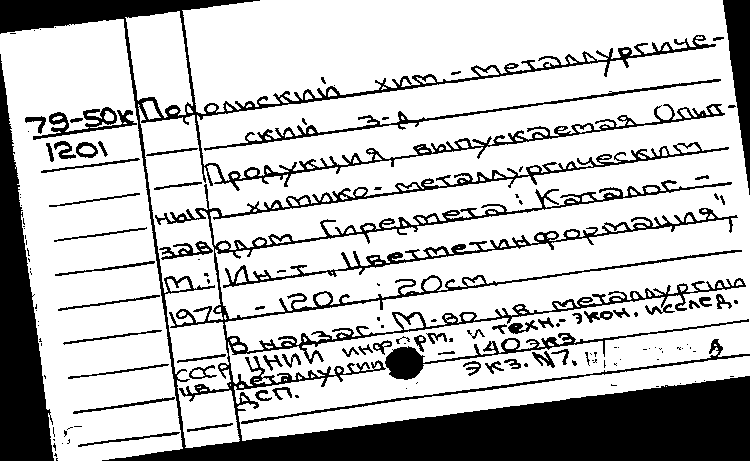 79-50к Подольский хим.-металлургиче-
1201 ский з-д.
Продукция, выпускаемая Опыт-
ным химико-металлургическим
заводом Гиредмета: Каталог. -
М.: Ин-т „Цветметинформация",
1979. - 120с.; 20см.
В надзаг.: М-во цв. металлургии
СССР, ЦНИИ информ. и техн.-экон. исслед.
цв. металлургии - 140экз.
ДСП. Экз. N7. А